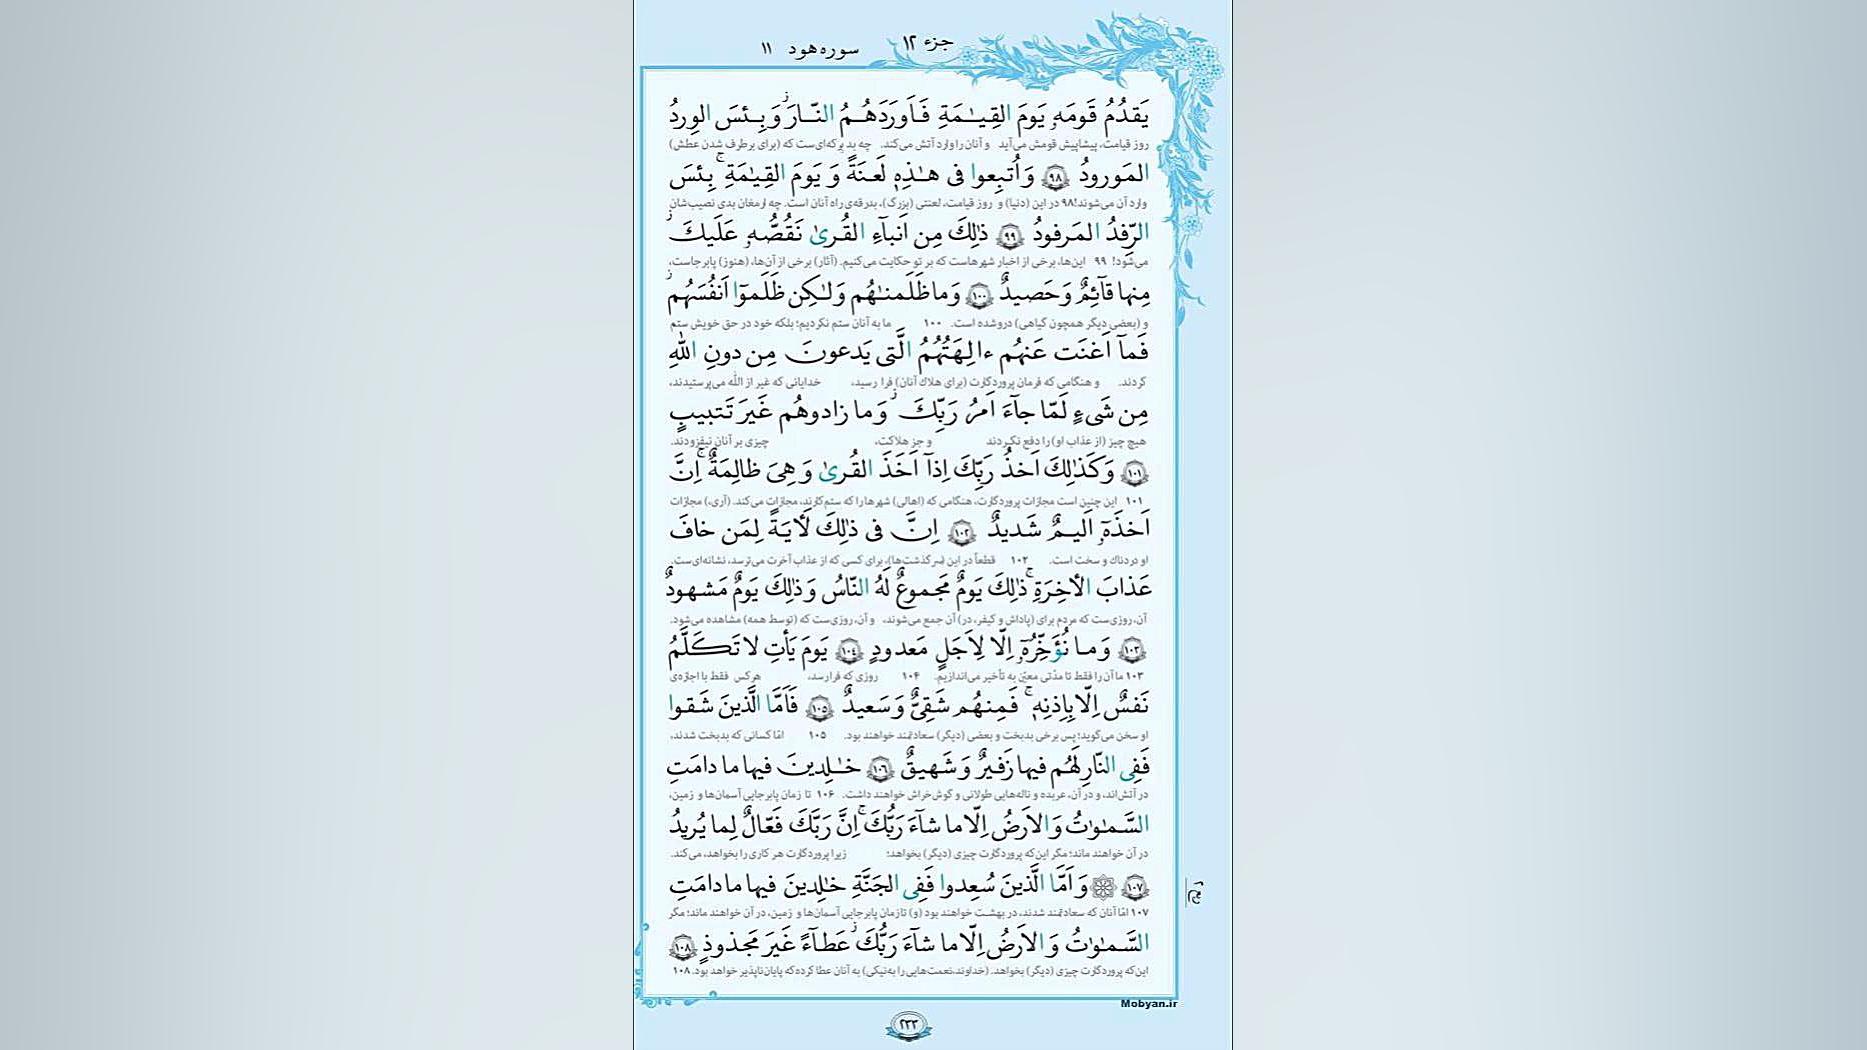 جزء ۱۲
سوره هود ۱۱
يَقدُمُ قَومَهۥ يَومَ القِيـٰمَةِ فَاَورَدَهُمُ النّارَ ۖ وَ بِئسَ الوِردُ
روز قیامت، پیشاپیش قومش می‌آید و آنان را وارد آتش می‌کند. چه بد برکه‌ای‌ست که (برای برطرف شدن عطش)
المَورودُ ۹۸ وَ اُتبِعوا فى هـٰذِهٖ لَعنَةً وَ يَومَ القِيٰمَةِ ۚ بِئسَ
وارد آن می‌شوند! ۹۸ در این (دنیا) و روز قیامت، لعنتی (بزرگ)، بدرقه‌ی راه آنان است. چه ارمغان بدی نصیب‌شان
الرِّفدُ المَرفودُ ۹۹ ذٰلِكَ مِن اَنبآءِ القُرىٰ نَقُصُّهۥ عَلَيكَ ۖ
می‌شود! ۹۹ این‌ها، برخی از اخبار شهرهاست که بر تو حکایت می‌کنیم. (آثار) برخی از آن‌ها، (هنوز) پابرجاست،
مِنها قآئِمٌ وَ حَصيدٌ ۱۰۰ وَ ما ظَلَمنـٰهُم وَ لـٰكِن ظَلَموٓا اَنفُسَهُم ۖ
و (بعضی دیگر همچون گیاهی) دروشده است. ۱۰۰ ما به آنان ستم نکردیم؛ بلکه خود در حق خویش ستم
فَمآ اَغنَت عَنهُم ءالِهَتُهُمُ الَّتى يَدعونَ مِن دونِ اللّٰهِ
کردند. و هنگامی که فرمان پروردگارت (برای هلاک آنان) فرا رسید، خدایانی که غیر از الله می‌پرستیدند،
مِن شَىءٍ لَمّا جآءَ اَمرُ رَبِّكَ ۖ وَ ما زادوهُم غَيرَ تَتبيبٍ
هیچ چیز (از عذاب او) را دفع نکردند و جز هلاکت، چیزی بر آنان نیفزودند.
۱۰۱ وَ كَذٰلِكَ اَخذُ رَبِّكَ اِذآ اَخَذَ القُرىٰ وَ هِىَ ظالِمَةٌ ۚ اِنَّ
۱۰۱ این چنین است مجازات پروردگارت، هنگامی که (اهالی) شهرها را که ستم‌کارند، مجازات می‌کند. (آری،) مجازات
اَخذَهۥٓ اَليمٌ شَديدٌ ۱۰۲ اِنَّ فى ذٰلِكَ لَأيَةً لِمَن خافَ
او دردناک و سخت است. ۱۰۲ قطعاً در این (سرگذشت‌ها)، برای کسی که از عذاب آخرت می‌ترسد، نشانه‌ای‌ست.
عَذابَ الأخِرَةِ ۚ ذٰلِكَ يَومٌ مَجموعٌ لَهُ النّاسُ وَ ذٰلِكَ يَومٌ مَشهودٌ
آن، روزی‌ست که مردم برای (پاداش و کیفر، در) آن جمع می‌شوند، و آن، روزی‌ست که (توسط همه) مشاهده می‌شود.
۱۰۳ وَ ما نُؤَخِّرُهۥٓ اِلّا لِاَجَلٍ مَعدودٍ ۱۰۴ يَومَ يَأتِ لا تَكَلَّمُ
۱۰۳ ما آن را فقط تا مدّتی معیّن به تأخیر می‌اندازیم. ۱۰۴ روزی که فرا رسد، هر کس فقط با اجازه‌ی
نَفسٌ اِلّا بِاِذنِهٖ ۚ فَمِنهُم شَقِىٌّ وَ سَعيدٌ ۱۰۵ فَاَمَّا الَّذينَ شَقوا
او سخن می‌گوید؛ پس برخی بدبخت و بعضی (دیگر) سعادتمند خواهند بود. ۱۰۵ امّا کسانی که بدبخت شدند،
فَفِى النّارِ لَهُم فيها زَفيرٌ وَ شَهيقٌ ۱۰۶ خـٰلِدينَ فيها ما دامَتِ
در آتش‌اند، و در آن، عربده و ناله‌هایی طولانی و گوش‌خراش خواهند داشت. ۱۰۶ تا زمان پابرجایی آسمان‌ها و زمین،
السَّمـٰوٰتُ وَ الاَرضُ اِلّا ما شآءَ رَبُّكَ ۚ اِنَّ رَبَّكَ فَعّالٌ لِما يُريدُ
در آن خواهند ماند؛ مگر این‌که پروردگارت چیزی (دیگر) بخواهد؛ زیرا پروردگارت هر کاری را بخواهد، می‌کند.
۱۰۷ ۞ وَ اَمَّا الَّذينَ سُعِدوا فَفِى الجَنَّةِ خـٰلِدينَ فيها ما دامَتِ
۱۰۷ امّا آنان که سعادتمند شدند، در بهشت خواهند بود (و) تا زمان پابرجایی آسمان‌ها و زمین، در آن خواهند ماند؛ مگر
السَّمـٰوٰتُ وَ الاَرضُ اِلّا ما شآءَ رَبُّكَ ۖ عَطآءً غَيرَ مَجذوذٍ ۱۰۸
این‌که پروردگارت چیزی (دیگر) بخواهد. (خداوند، نعمت‌هایی را به‌نیکی) به آنان عطا کرده که پایان‌ناپذیر خواهد بود. ۱۰۸
Mobyan.ir
۲۳۳